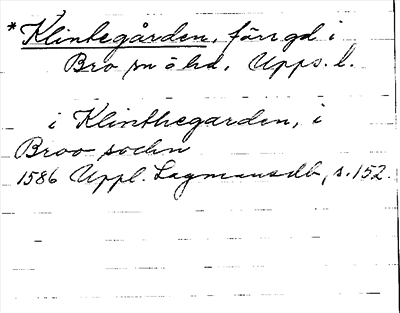 *Klintegården, förr gd i
Bro sn o hd, Upps. l.
i Klinthegarden, i
Broo sockn
1586 Uppl. Lagmansdb, s. 152.